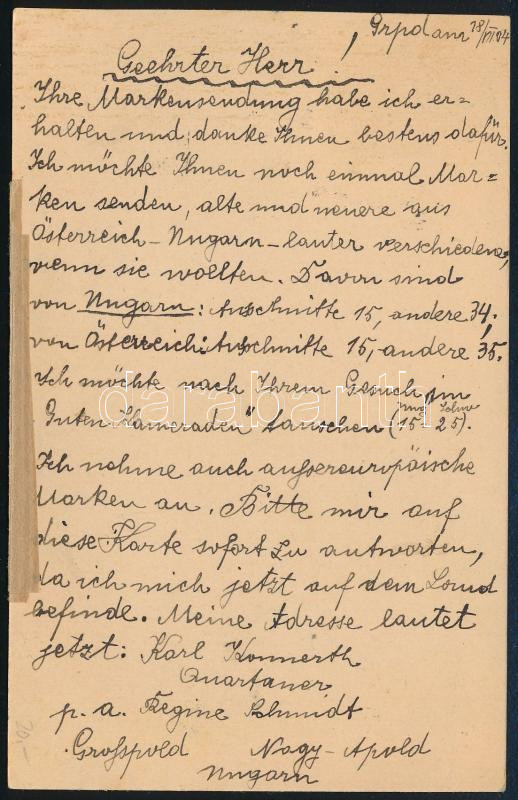 Grpdanr 18/VII 04
Geehrter Herr!
Ihre Markensendung habe ich er=
halten und danke Ihnen bestens dafür.
Ich möchte Ihnen noch einmal Mar=
ken senden, alte und neuere aus
Österreich-Ungarn - lauter verschiedene,
wenn sie wollten. Davon sind
von Ungarn: Ausschnitte 15, andere 34;
von Österreich: Ausschnitte 15, andere 35.
Ich möchte nach Ihrem Gesuch im
"Guten Kameraden" tauschen (15 - 25).
Ich nehme auch aussereuropäische
Marken an. Bitte mir auf
diese Karte sofort zu antworten,
da ich mich jetzt auf dem Land
befinde. Meine Adresse lautet
jetzt: Karl Konnerth
Quartaner
p. a. Regine Schmidt
Grosspold Nagy-Apold
Ungarn
20,-
darabanth